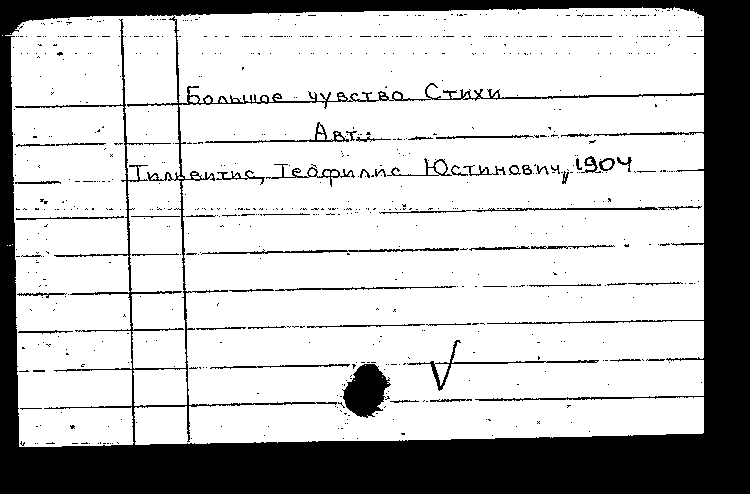 Большое чувство Стихи
Авт.:
Тильвитис, Теофилис Юстинович, 1904